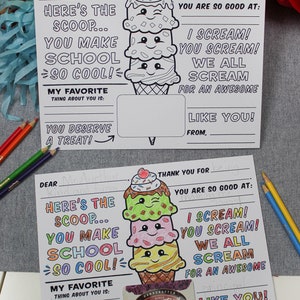 YOU ARE SO GOOD AT:
HERE'S THE
SCOOP...
YOU MAKE
SCHOOL
SO COOL!
I SCREAM!
YOU SCREAM!
WE ALL
SCREAM
FOR AN AWESOME
MY FAVORITE
THING ABOUT YOU IS:
LIKE YOU!
YOU DESERVE
A TREAT!
FROM,
DEAR
THANK YOU FOR
YOU ARE SO GOOD AT:
HERE'S THE
SCOOP...
YOU MAKE
SCHOOL
SO COOL!
I SCREAM!
YOU SCREAM!
WE ALL
SCREAM
FOR AN AWESOME
MY FAVORITE
THING ABOUT YOU IS:
LIKE YOU!